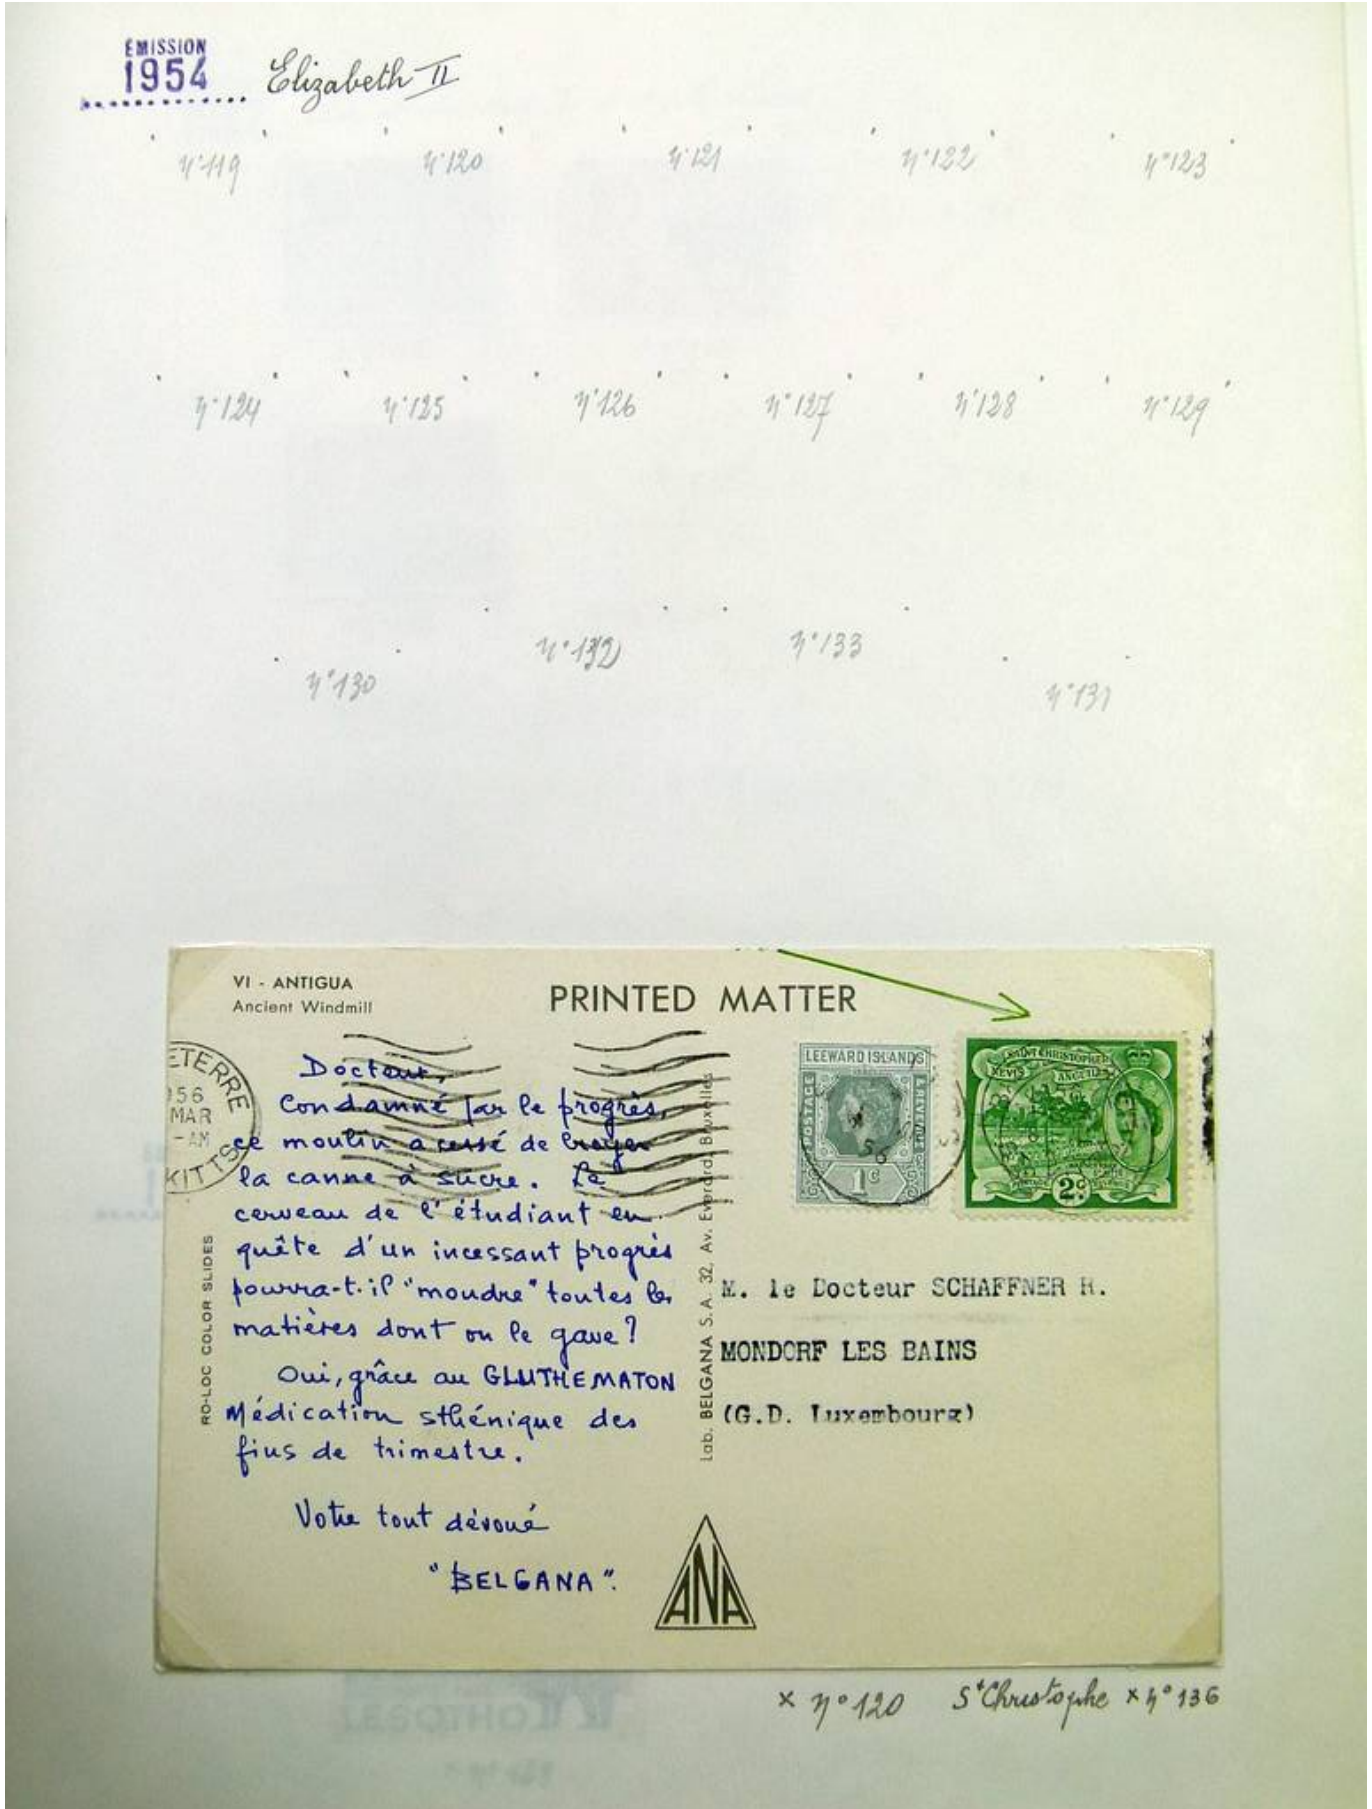 ÉMISSION
1954 Elizabeth II
n°119 n°120 n°121 n°122 n°123
n°124 n°125 n°126 n°127 n°128 n°129
n°132 n°133
n°130 n°131
VI - ANTIGUA
Ancient Windmill
PRINTED MATTER
ETERRE
956
MAR
-AM
KITTS
Docteur,
Condamné par le progrès,
ce moulin a cessé de broyer
la canne à sucre. Le
cerveau de l'étudiant en
quête d'un incessant progrès
pourra-t-il "moudre" toutes les
matières dont on le gave?
Oui, grâce au GLUTHEMATON
Médication sthénique des
fins de trimestre.
Votre tout dévoué
"BELGANA".
RO-LOC COLOR SLIDES
Lab. BELGANA S.A. 32, Av. Everard, Bruxelles
LEEWARD ISLANDS
POSTAGE
& REVENUE
1c
56
SAINT CHRISTOPHER
NEVIS ANGUILLA
2c
M. le Docteur SCHAFFNER H.
MONDORF LES BAINS
(G.D. Luxembourg)
ANA
x n°120 St Christophe x n°136